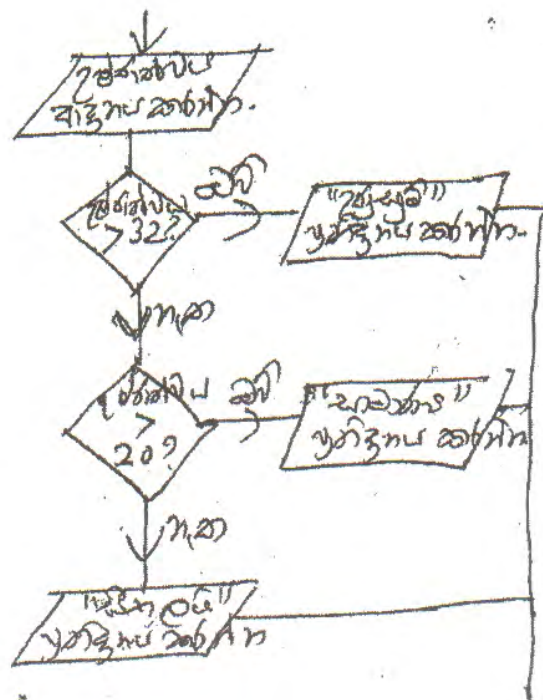 උෂ්ණත්වය
ආදානය කරන්න.
උෂ්ණත්වය
> 32?
ඔව්
"උණුසුම්"
ප්‍රතිදානය කරන්න.
නැත
උෂ්ණත්වය
>
20?
ඔව්
"සාමාන්‍ය"
ප්‍රතිදානය කරන්න
නැත
"සීතලයි"
ප්‍රතිදානය කරන්න